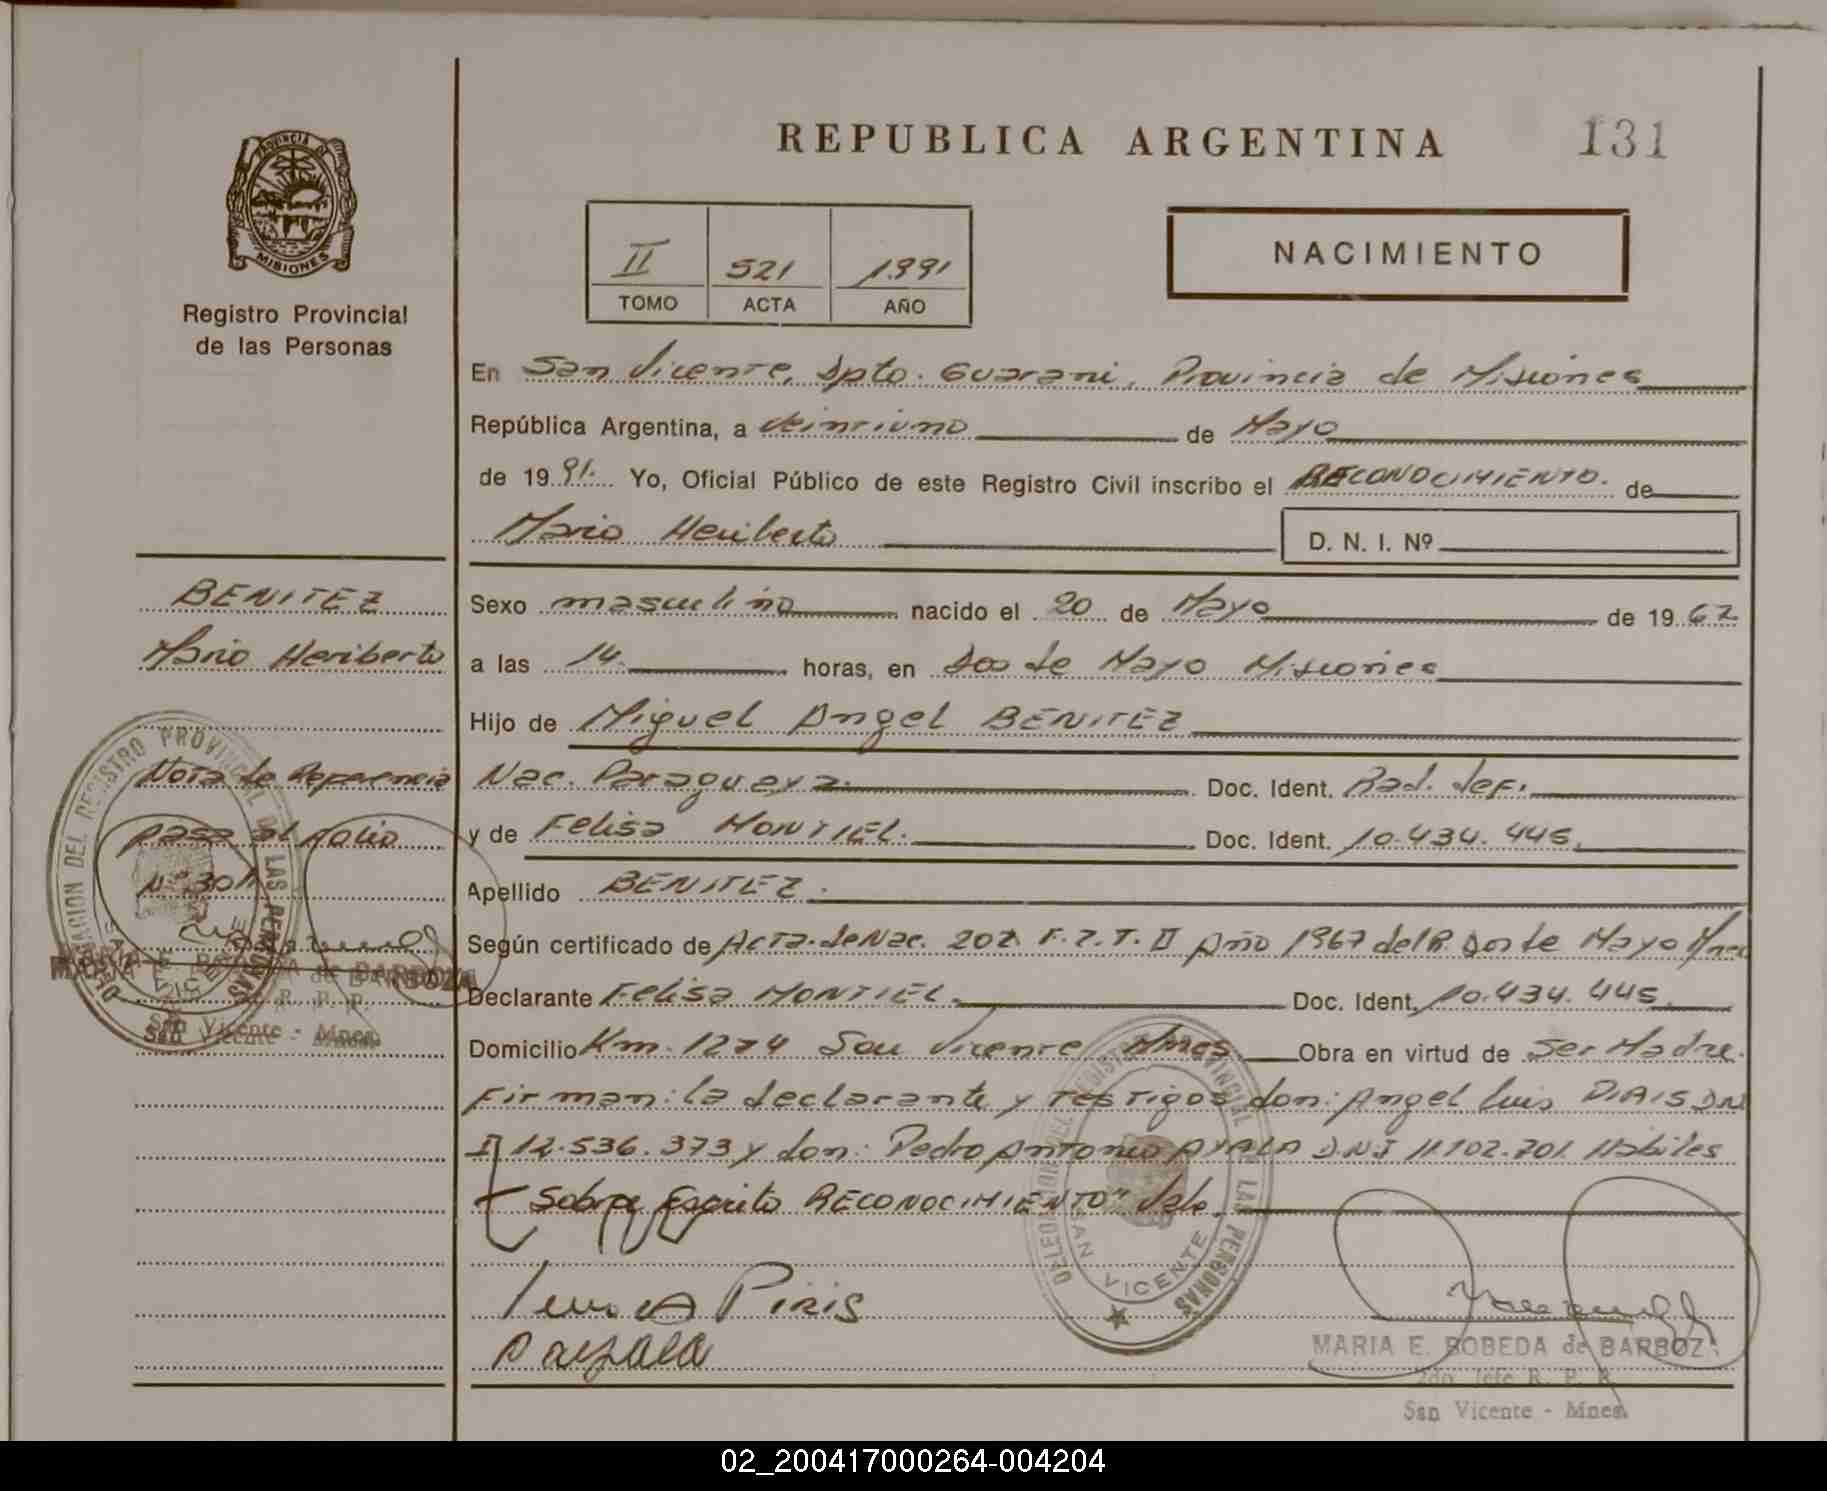 REPUBLICA ARGENTINA 131
PROVINCIA DE
MISIONES
Registro Provincial
de las Personas
II 521 1991
TOMO ACTA AÑO
NACIMIENTO
En San Vicente, Dpto. Guarani, Provincia de Misiones
República Argentina, a veintiuno de Mayo
de 1991. Yo, Oficial Público de este Registro Civil inscribo el RECONOCIMIENTO. de
Mario Heriberto D. N. I. Nº
BENITEZ
Mario Heriberto
Nota de Referencia
pasa al folio
Nº 301
San Vicente - Mnes.
Sexo masculino nacido el 20 de Mayo de 1967
a las 14. horas, en Dos de Mayo Misiones
Hijo de Miguel Angel BENITEZ
Nac. Paraguaya. Doc. Ident. Rad. def.
y de Felisa MONTIEL. Doc. Ident. 10.434.445.
Apellido BENITEZ.
Según certificado de Acta. de Nac. 202 F. 2. T. II Año 1967 del R. Dos de Mayo Mnes
Declarante Felisa MONTIEL. Doc. Ident. 10.434.445.
Domicilio Km. 1274 San Vicente Mnes. Obra en virtud de Ser Madre.
Firman: la declarante y testigos don: Angel Luis DIAIS DN
I 12.536.373 y don: Pedro Antonio AYALA D.N.I 11.102.701. Habiles
Sobre Escrito RECONOCIMIENTO" Vale.
Piris
P ayala
DELEGACION DEL REGISTRO PROVINCIAL DE LAS PERSONAS
SAN VICENTE
MARIA E. BOBEDA de BARBOZA
2do. Jefe R. P. P.
San Vicente - Mnes.
02_200417000264-004204